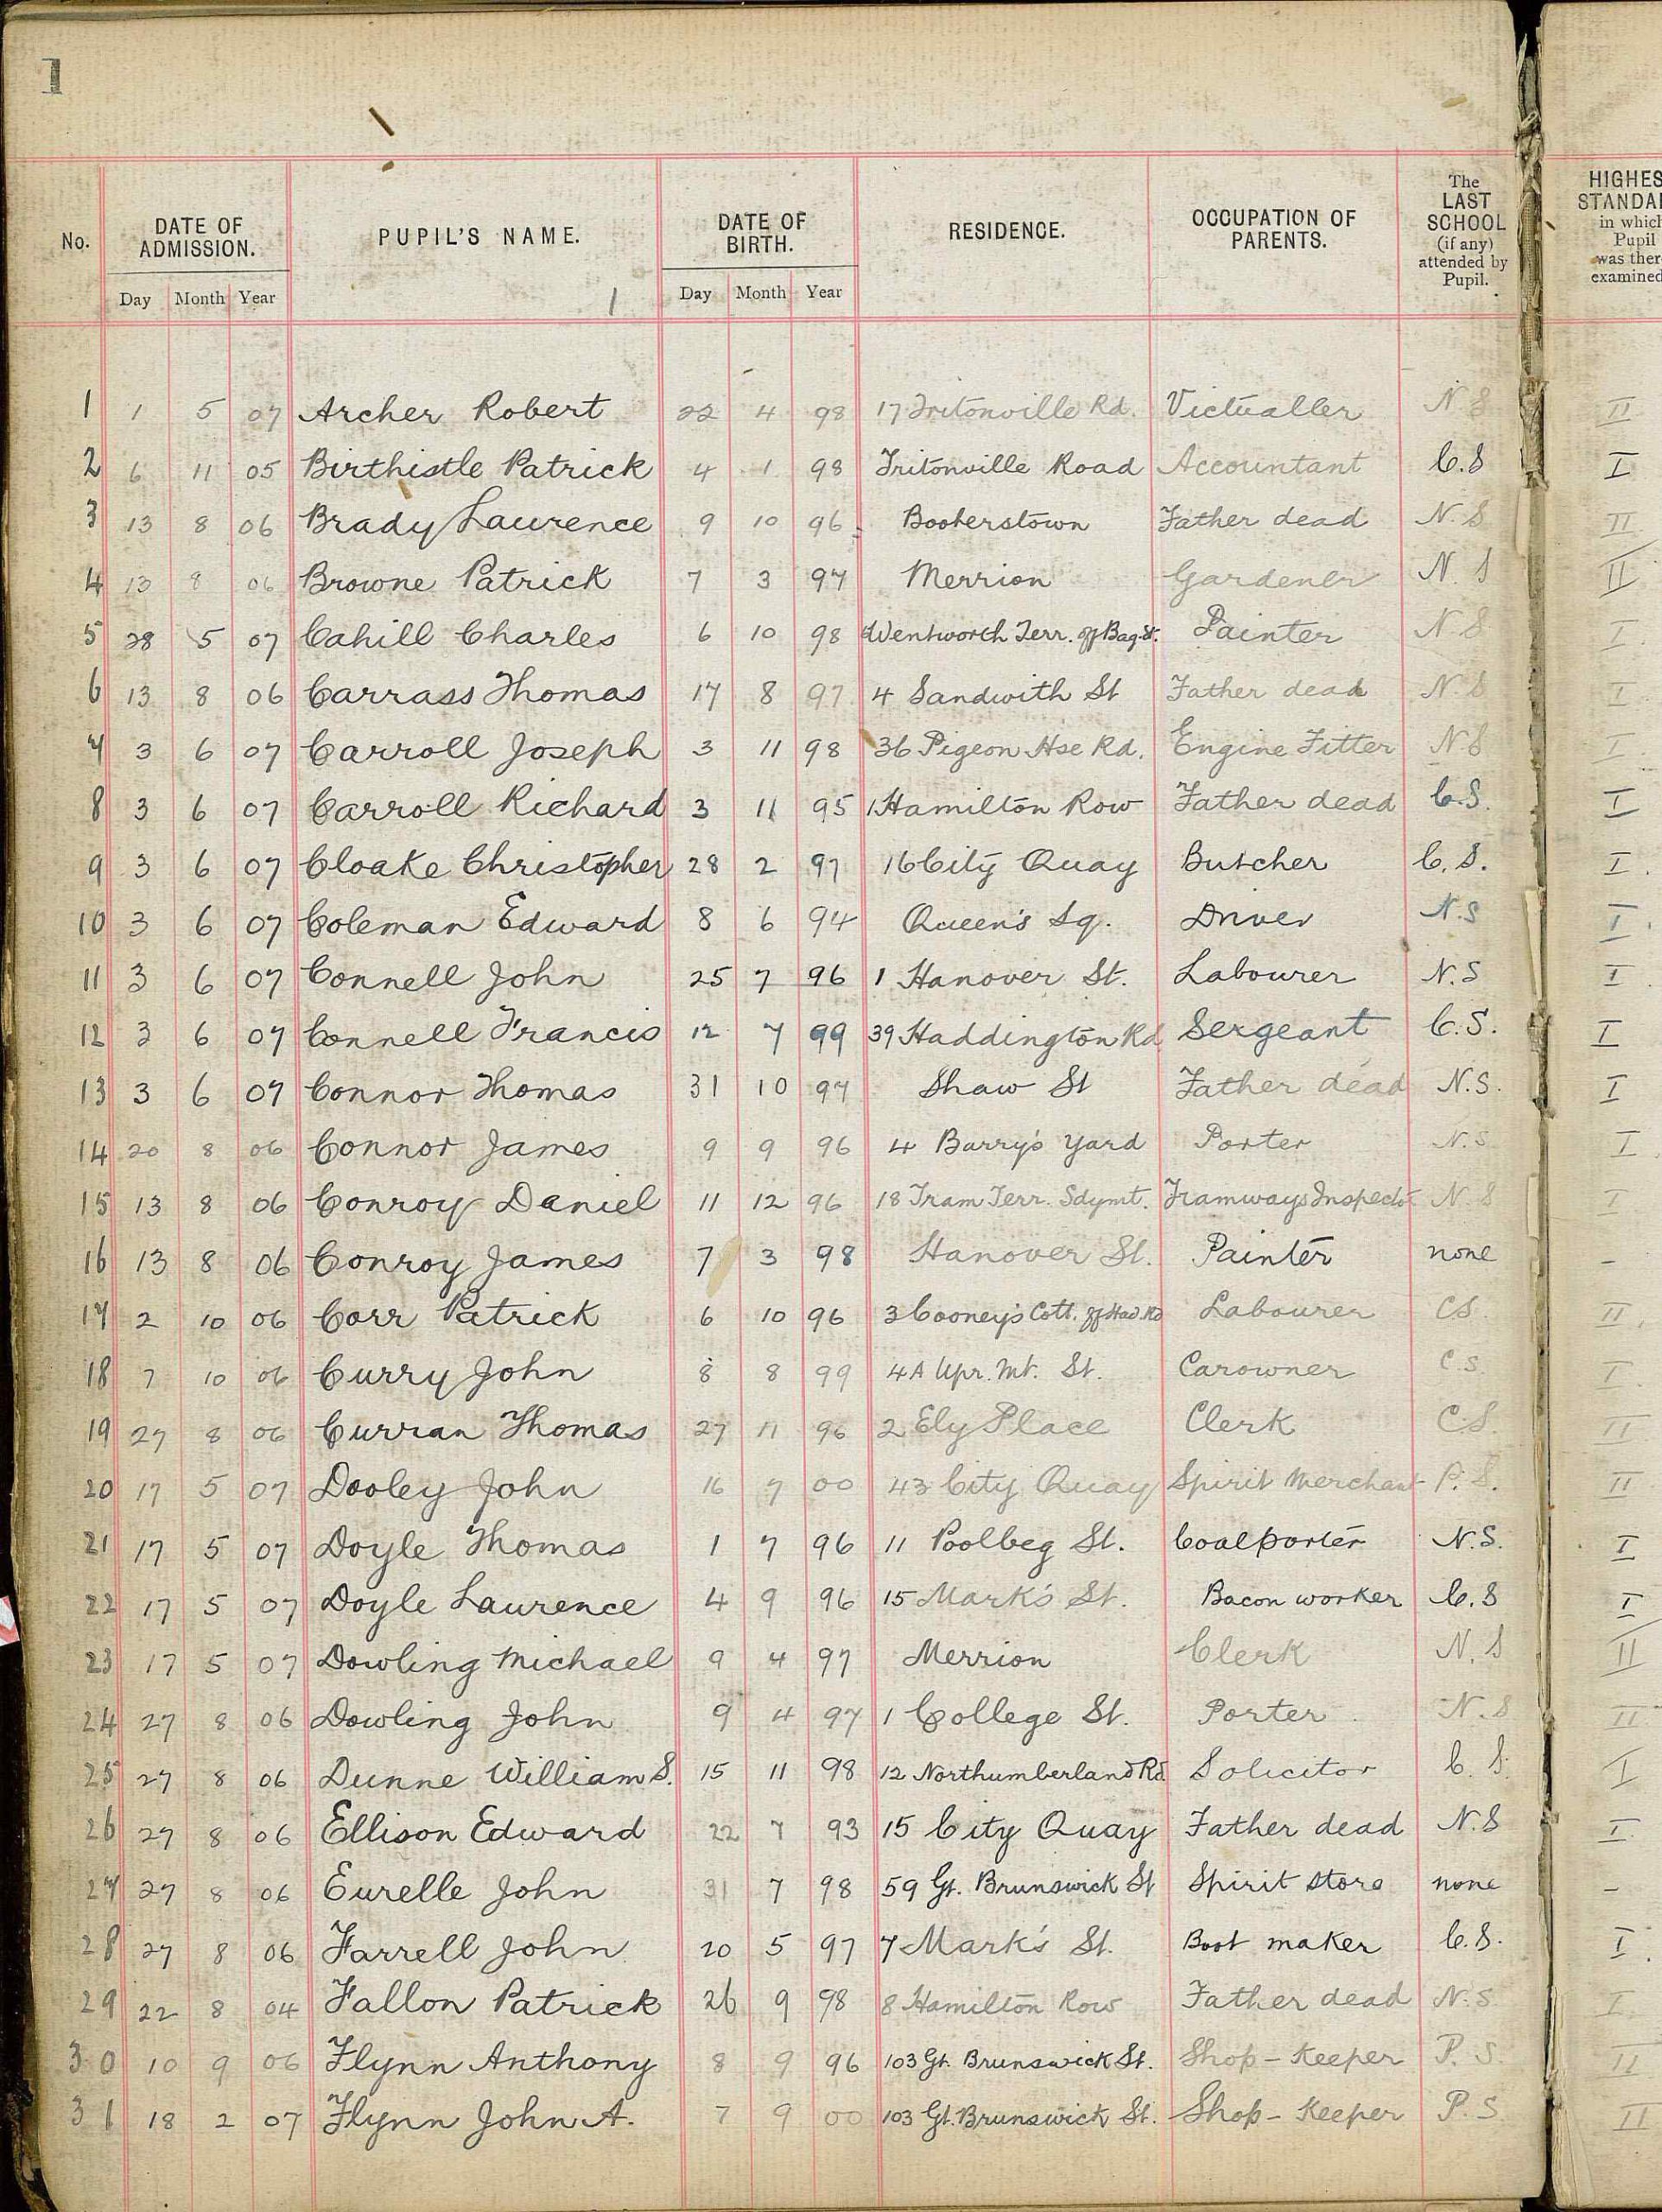 1
No. DATE OF ADMISSION. PUPIL'S NAME. DATE OF BIRTH. RESIDENCE. OCCUPATION OF PARENTS. The LAST SCHOOL (if any) attended by Pupil. HIGHES STANDA in which Pupil was ther examined
Day Month Year 1 Day Month Year
1 1 5 07 Archer Robert 22 4 98 17 Tritonville Rd. Victualler N.S II
2 6 11 05 Birthistle Patrick 4 1 98 Tritonville Road Accountant C.S I
3 13 8 06 Brady Laurence 9 10 96 Booterstown Father dead N.S II
4 13 8 06 Browne Patrick 7 3 97 Merrion Gardener N.S II
5 28 5 07 Cahill Charles 6 10 98 Wentworth Terr. off Bag. St. Painter N.S I
6 13 8 06 Carrass Thomas 17 8 97 4 Sandwith St Father dead N.S I
7 3 6 07 Carroll Joseph 3 11 98 36 Pigeon Hse Rd. Engine Fitter N.S I
8 3 6 07 Carroll Richard 3 11 95 1 Hamilton Row Father dead C.S. I
9 3 6 07 Cloake Christopher 28 2 97 16 City Quay Butcher C.S. I
10 3 6 07 Coleman Edward 8 6 94 Queen's Sq. Driver N.S I
11 3 6 07 Connell John 25 7 96 1 Hanover St. Labourer N.S I
12 3 6 07 Connell Francis 12 7 99 39 Haddington Rd Sergeant C.S. I
13 3 6 07 Connor Thomas 31 10 97 Shaw St Father dead N.S. I
14 20 8 06 Connor James 9 9 96 4 Barry's Yard Porter N.S I
15 13 8 06 Conroy Daniel 11 12 96 18 Tram Terr. Sdymt. Tramways Inspector N.S I
16 13 8 06 Conroy James 7 3 98 Hanover St. Painter none -
17 2 10 06 Corr Patrick 6 10 96 3 Cooney's Cott. off Had. Rd Labourer CS II
18 7 10 06 Curry John 8 8 99 4A Upr. Mt. St. Carowner C.S I
19 27 8 06 Curran Thomas 27 11 96 2 Ely Place Clerk C.S. II
20 17 5 07 Dooley John 16 7 00 43 City Quay Spirit Merchant P.S. II
21 17 5 07 Doyle Thomas 1 7 96 11 Poolbeg St. Coalporter N.S. I
22 17 5 07 Doyle Laurence 4 9 96 15 Mark's St. Bacon worker C.S I
23 17 5 07 Dowling Michael 9 4 97 Merrion Clerk N.S II
24 27 8 06 Dowling John 9 4 97 1 College St. Porter N.S II
25 27 8 06 Dunne William S. 15 11 98 12 Northumberland Rd. Solicitor C.S. I
26 27 8 06 Ellison Edward 22 7 93 15 City Quay Father dead N.S I
27 27 8 06 Eurelle John 31 7 98 59 Gt. Brunswick St Spirit store none -
28 27 8 06 Farrell John 20 5 97 7 Mark's St. Boot maker C.S. I
29 22 8 04 Fallon Patrick 26 9 98 8 Hamilton Row Father dead N.S I
30 10 9 06 Flynn Anthony 8 9 96 103 Gt. Brunswick St. Shop-Keeper P.S II
31 18 2 07 Flynn John A. 7 9 00 103 Gt. Brunswick St. Shop-Keeper P.S II